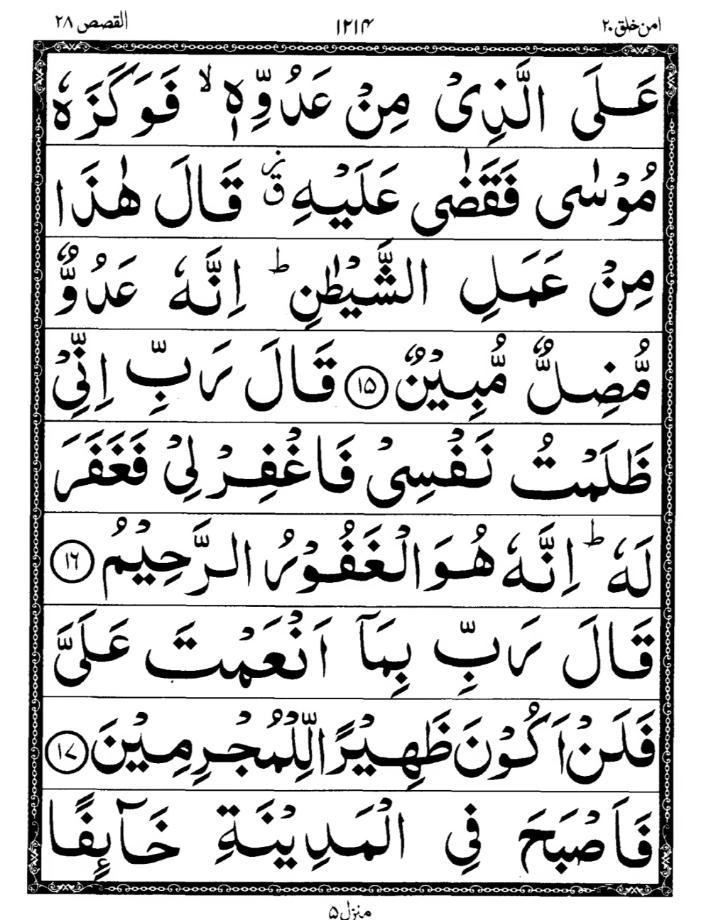 امن خلق ٢٠ ١٢١٤ القصص ٢٨
عَلَى الَّذِىْ مِنْ عَدُوِّهٖ ۙ فَوَكَزَهٗ
مُوْسٰى فَقَضٰى عَلَيْهِ ز ق قَالَ هٰذَا
مِنْ عَمَلِ الشَّيْطٰنِ ؕ اِنَّهٗ عَدُوٌّ
مُّضِلٌّ مُّبِيْنٌ ⑮ قَالَ رَبِّ اِنِّىْ
ظَلَمْتُ نَفْسِىْ فَاغْفِرْ لِىْ فَغَفَرَ
لَهٗ ؕ اِنَّهٗ هُوَ الْغَفُوْرُ الرَّحِيْمُ ⑯
قَالَ رَبِّ بِمَاۤ اَنْعَمْتَ عَلَىَّ
فَلَنْ اَكُوْنَ ظَهِيْرًا لِّلْمُجْرِمِيْنَ ⑰
فَاَصْبَحَ فِى الْمَدِيْنَةِ خَآىِٕفًا
منزل ٥